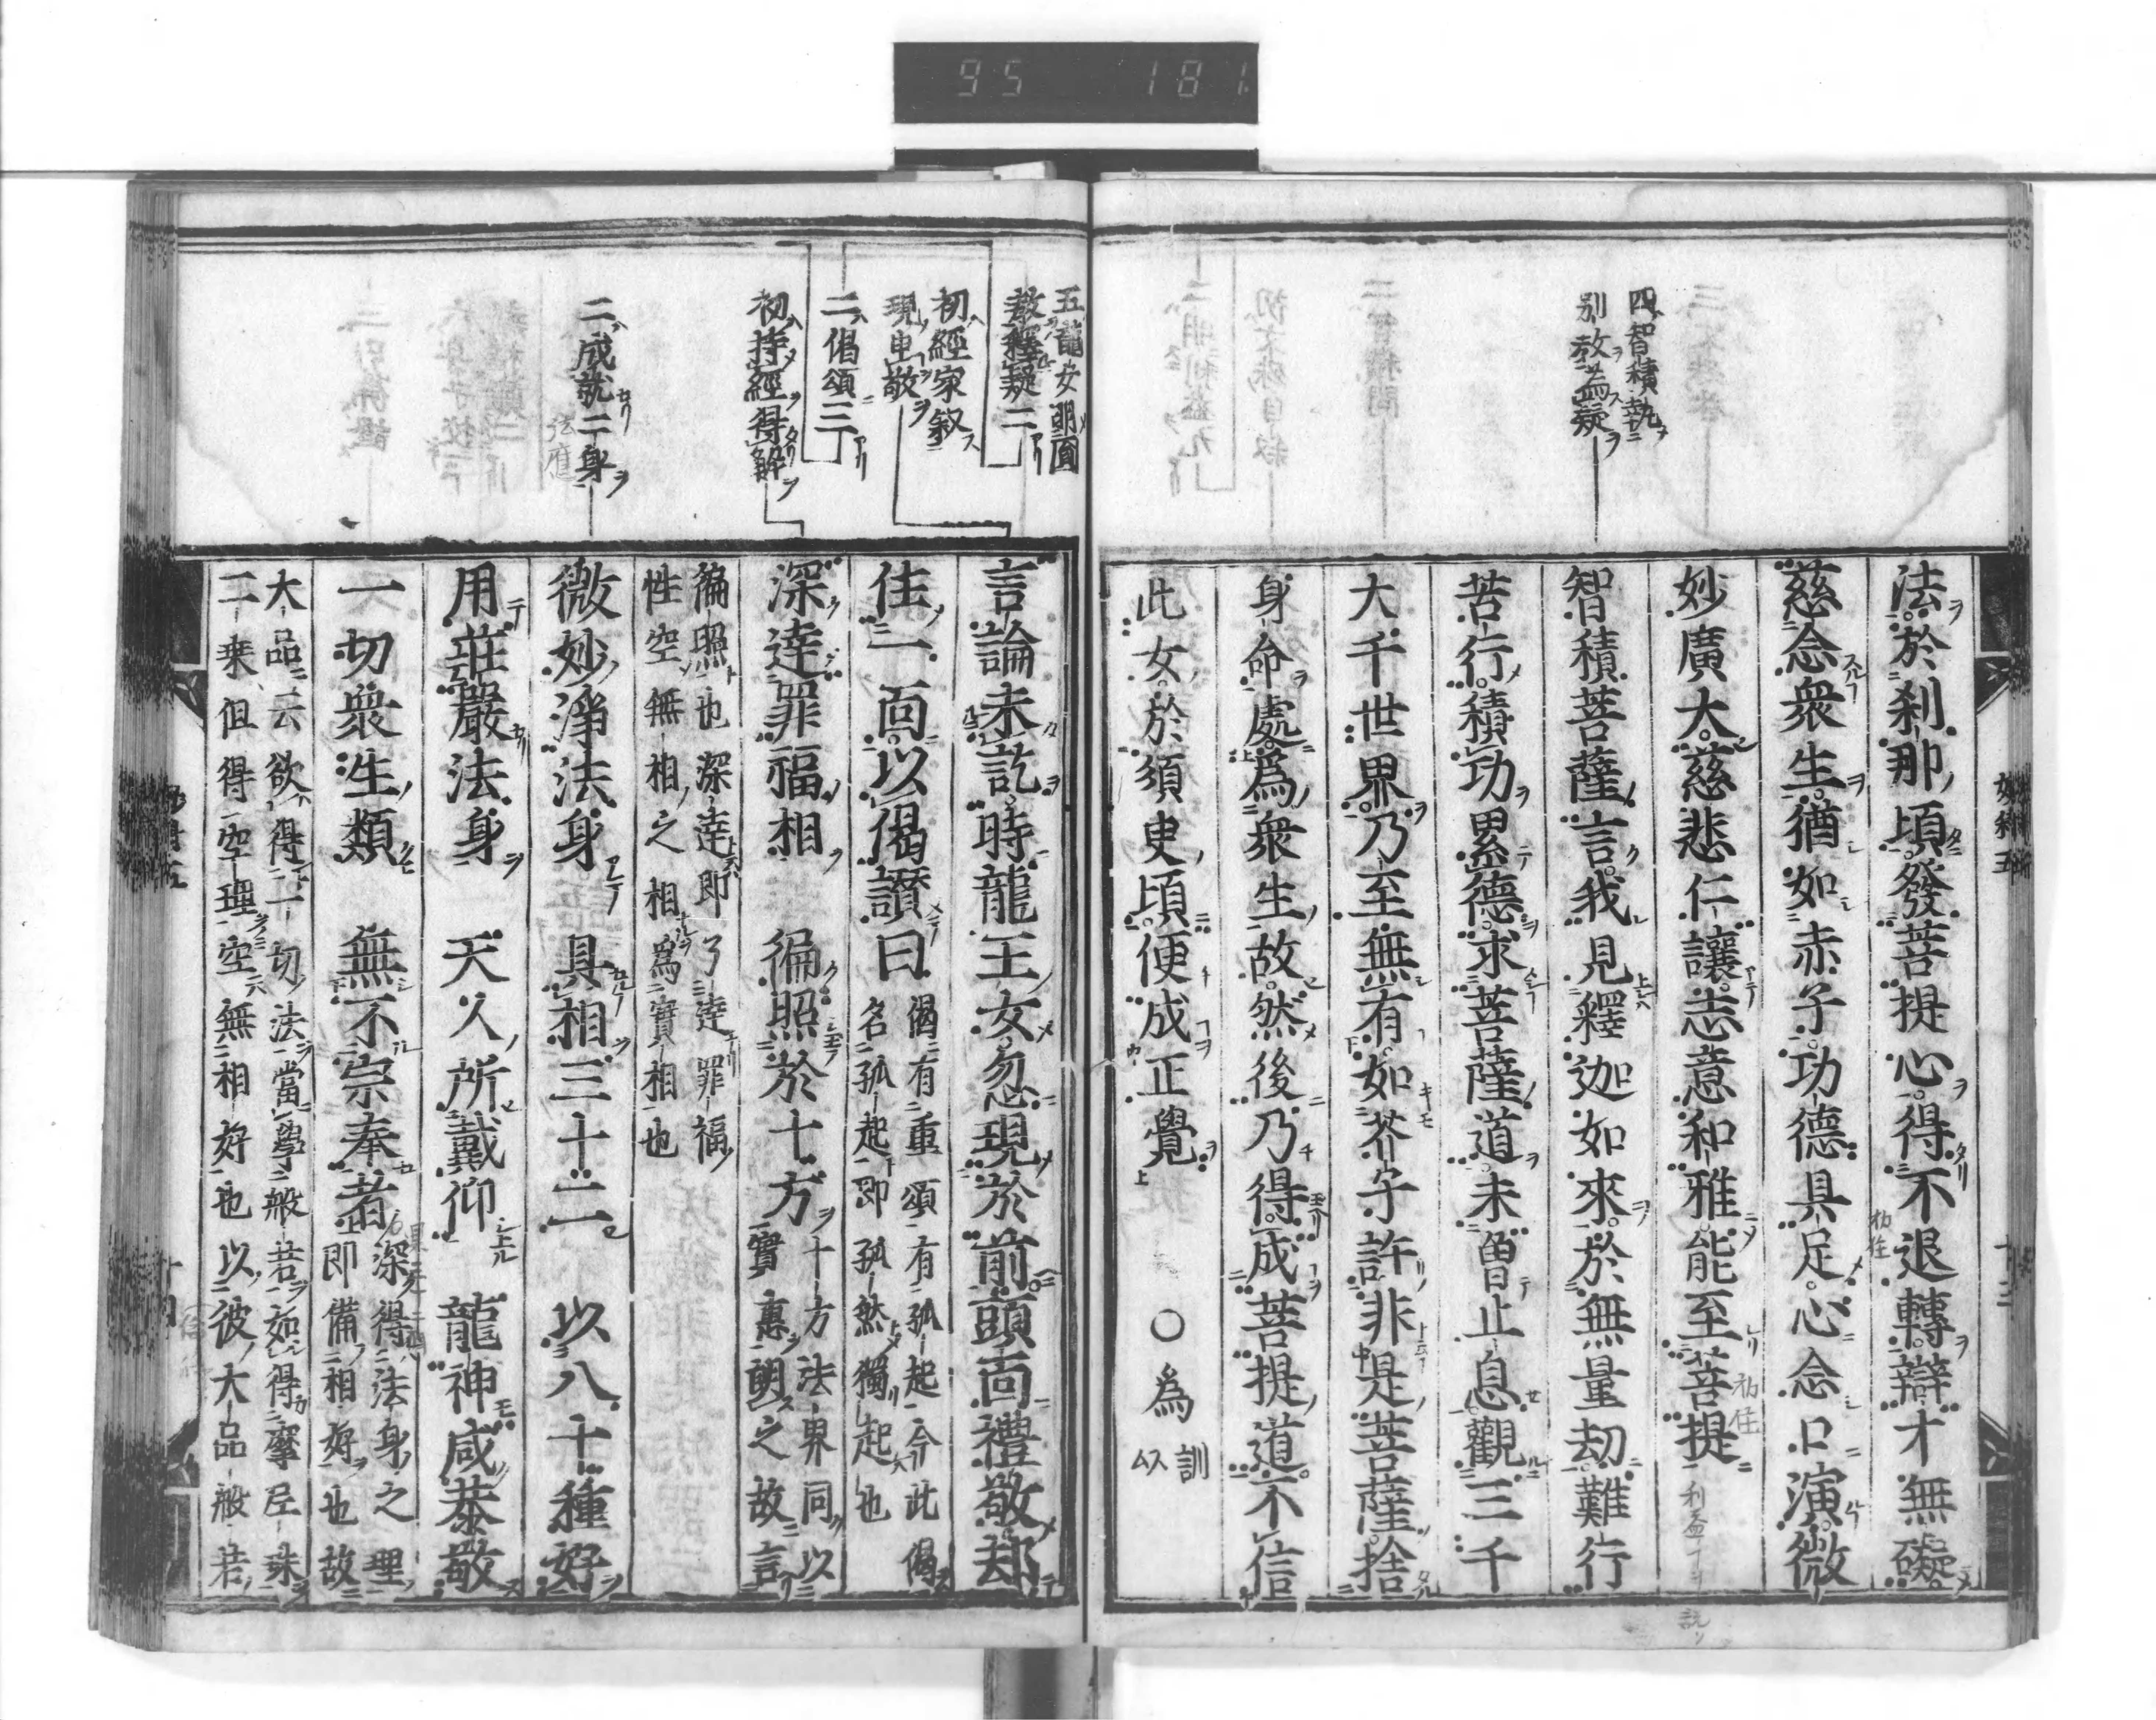 95 181
四智積執
別教為疑
法於刹那頃發菩提心得不退轉辯才無礙
慈念衆生猶如赤子功德具足心念口演微
妙廣大慈悲仁讓志意和雅能至菩提
智積菩薩言我見釋迦如來於無量劫難行
苦行積功累德求菩薩道未曽止息觀三千
大千世界乃至無有如芥子許非是菩薩捨
身命處爲衆生故然後乃得成菩提道不信
此女於須臾頃便成正覺 ○為訓以
五龍女明圓
教釋疑二
初經家叙
現申敬
二偈頌三
初持經得解
二成就二身
言論未訖時龍王女忽現於前頭面禮敬却
住一面以偈讃曰
偈有重頌有孤起今此偈
名孤起即孤然獨起也
深達罪福相 徧照於十方
十方法界同以
實惠朗之故言
徧照也深達即了達罪福
性空無相相之相爲實相也
微妙淨法身 具相三十二 以八十種好
用莊嚴法身 天人所戴仰 龍神咸恭敬
一切衆生類 無不宗奉者
深得法身之理
即備相好也故
大品云欲得一切法當學般若如得摩尼珠
二乗但得空理空無相好也以彼大品般若